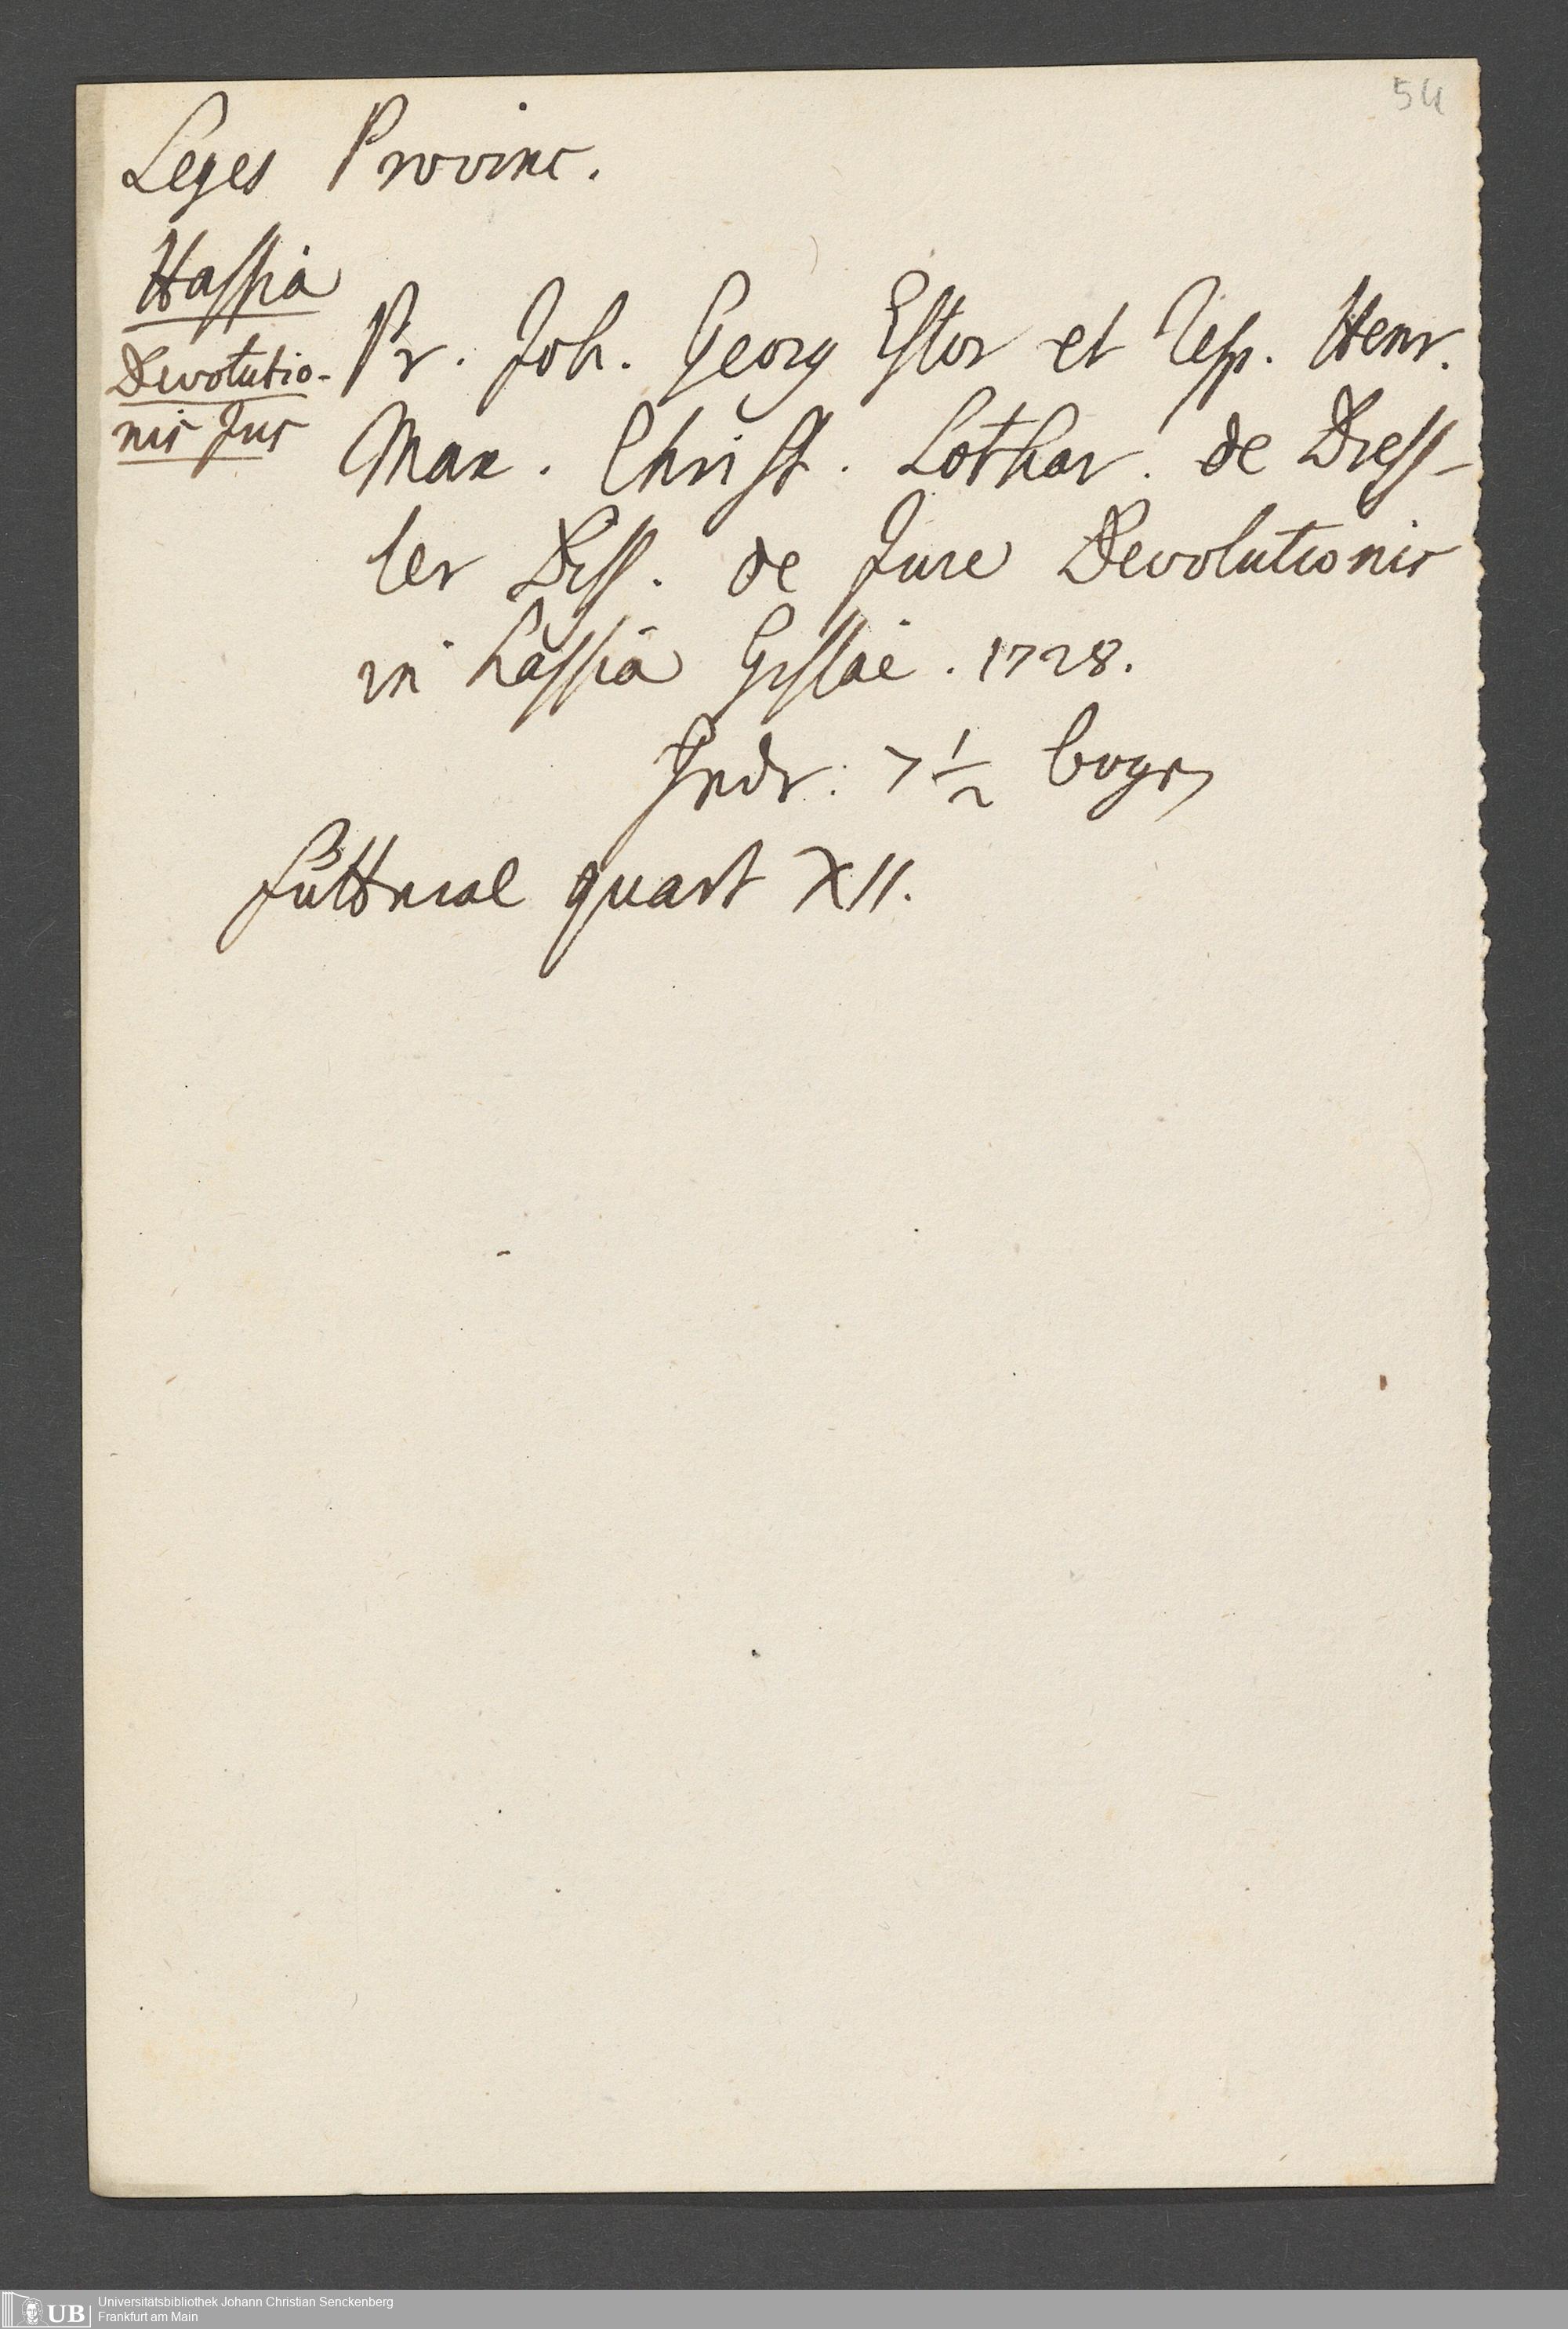 54
Leges Provinc.
Hassia
Devolutio-
nis Jus
Pr. Joh. Georg Estor et Resp. Henr.
Max. Christ. Lothar. de Dress-
ler Diss. de Jure Devolutionis
in Hassia Gissae. 1728.
7 1/2 bogen
Futteral quart XII.
UB
Universitätsbibliothek Johann Christian Senckenberg
Frankfurt am Main